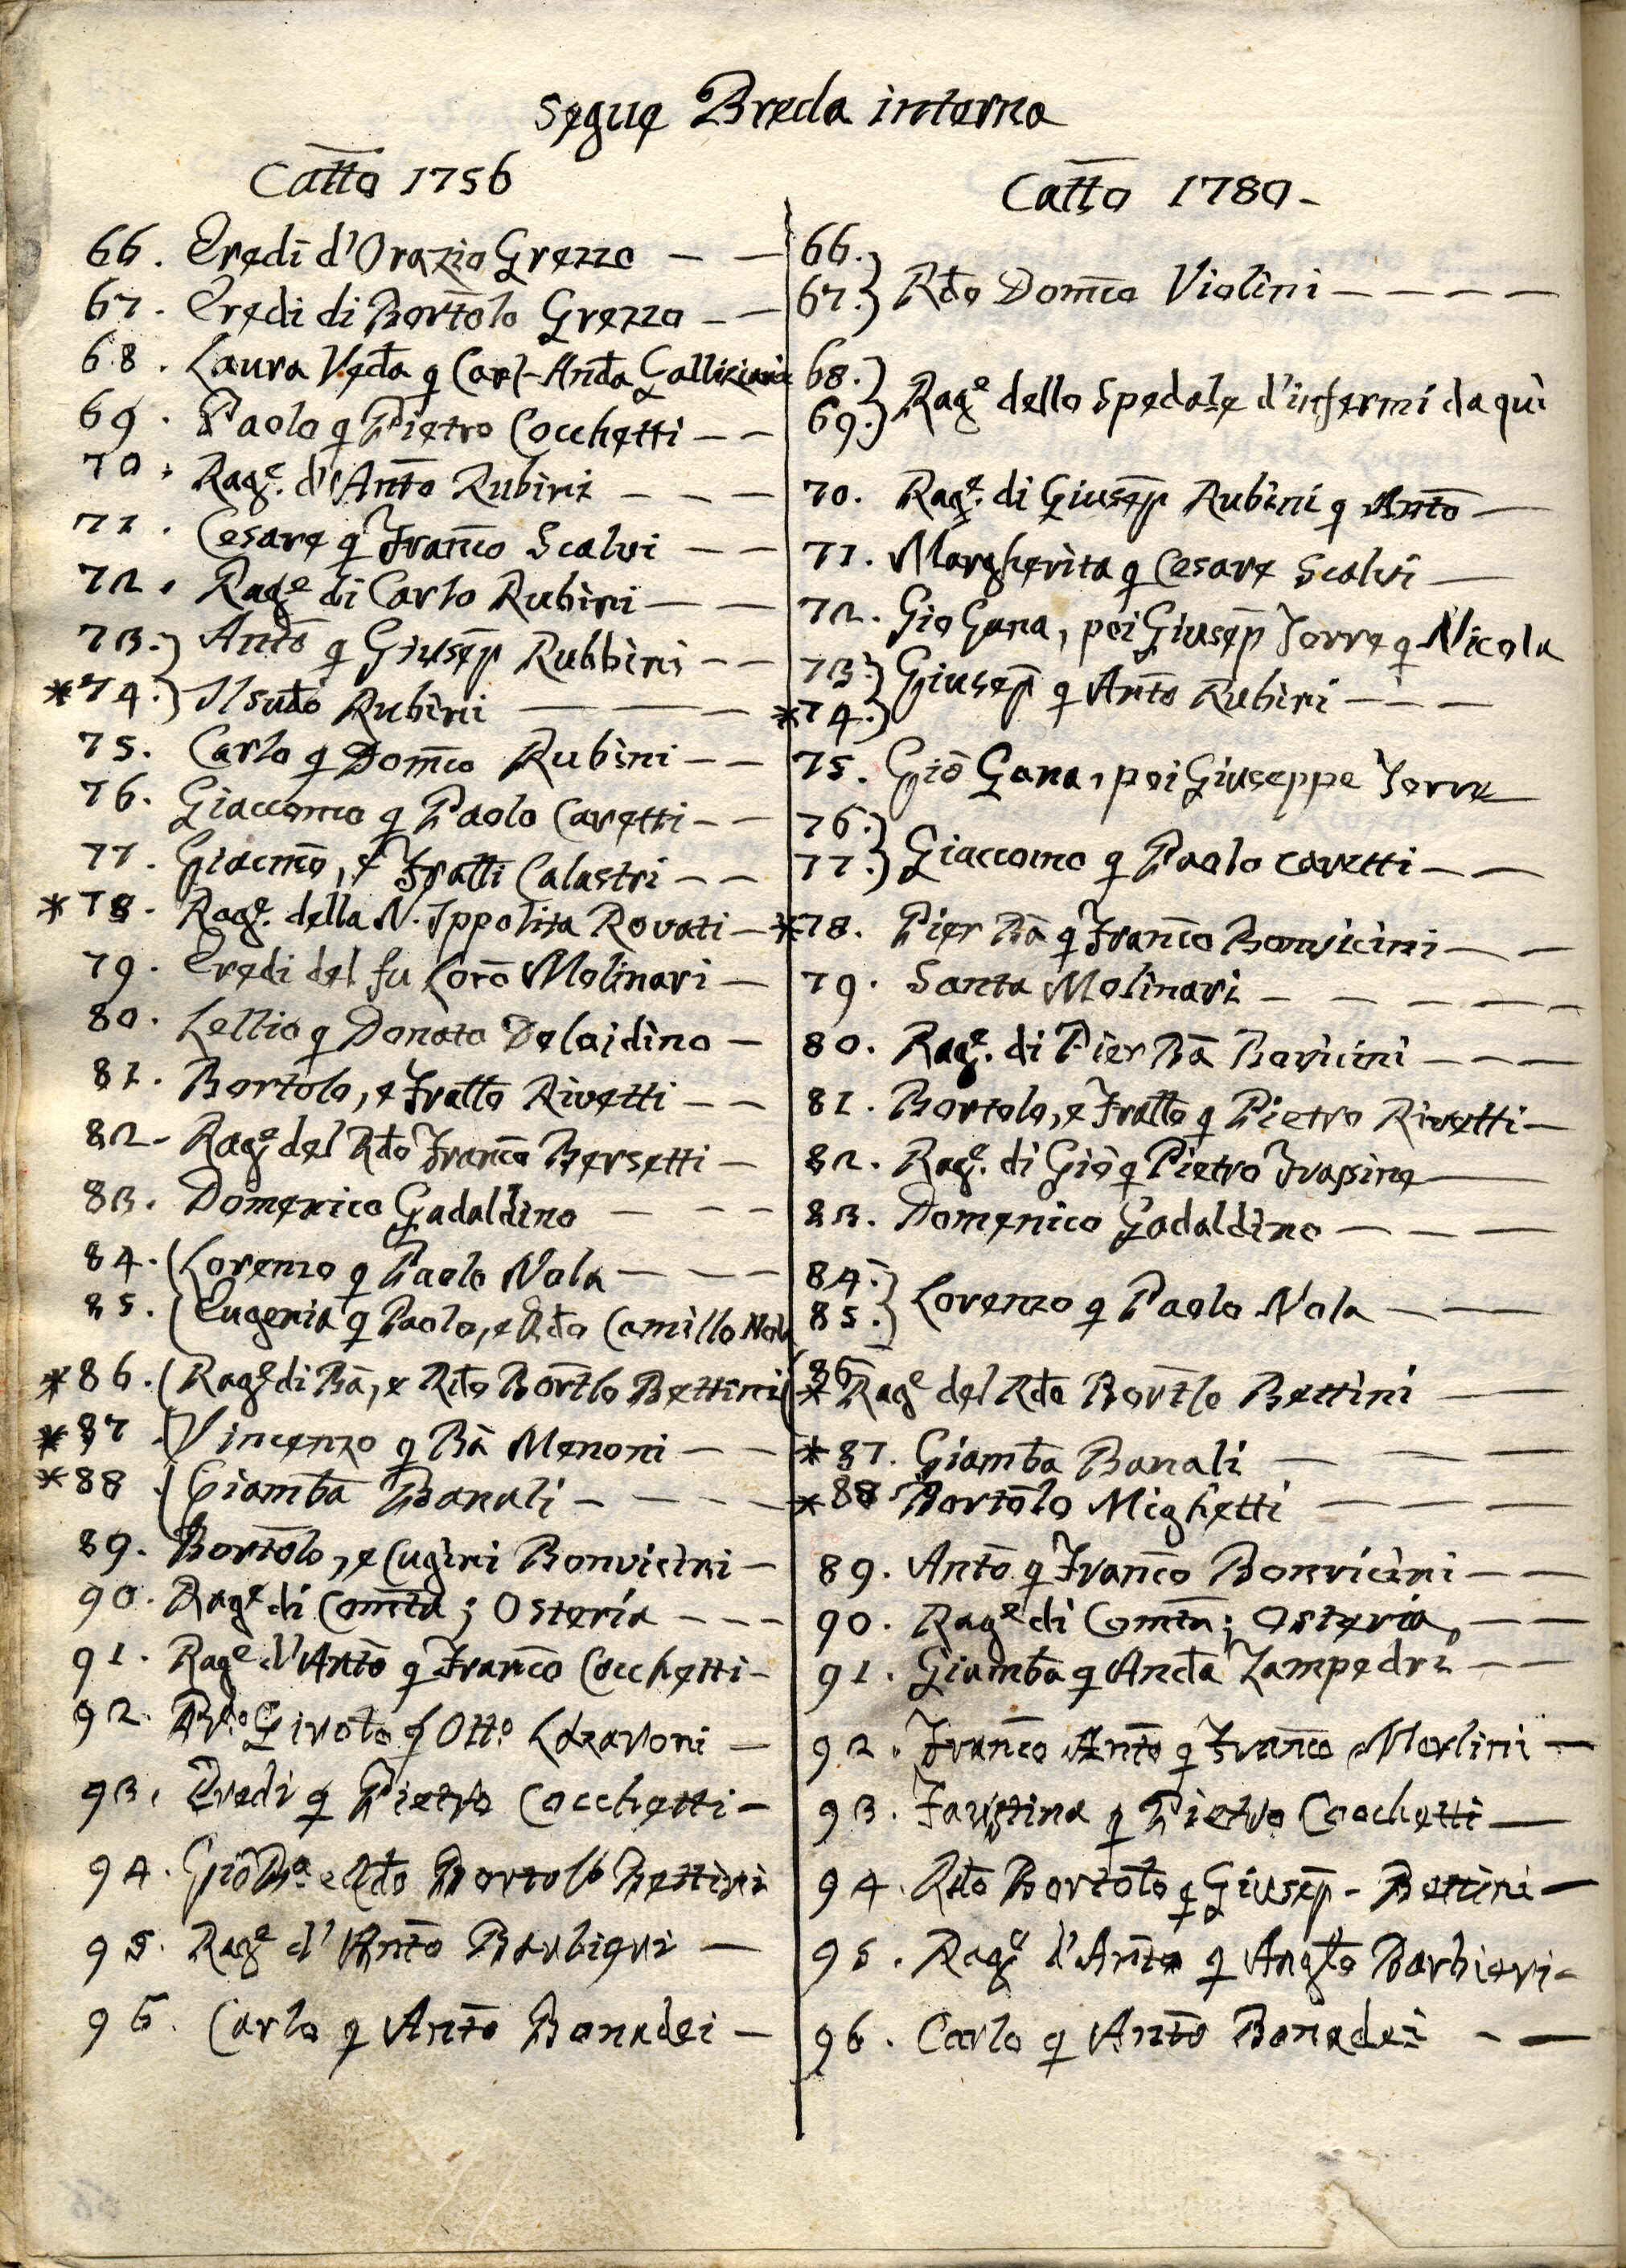 Segue Breda interna
Catto 1756
66. Eredi d'Orazio Grezzo — —
67. Eredi di Bortolo Grezzo — —
68. Laura Veda q Carl-Anda Galliziani
69. Paolo q Pietro Cocchetti — —
70. Rage. d'Anto Rubini — — —
71. Cesare q Franco Scalvi — —
72. Rage di Carlo Rubini — —
73.} Anto q Giusep Rubbini — —
*74.} Il sudo Rubini — — —
75. Carlo q Domco Rubini — —
76. Giaccomo q Paolo Cavetti — —
77. Giacmo, e Fratti Calastri — —
*78. Rage. della N. Ippolita Rovati —
79. Eredi del fu Loro Molinari —
80. Lellio q Donato Delaidino —
81. Bortolo, e Fratto Rivetti — —
82. Rage del Rdo Franco Bersetti —
83. Domenico Gadaldino — — —
84. (Lorenzo q Paolo Nola — — —
85. (Eugenia q Paolo, e Rdo Camillo Nola
*86. (Rage di Ba, e Rdo Bortlo Bettini
*87. (Vincenzo q Ba Menoni — —
*88. (Giamba Banali — — — —
89. Bortolo, e Cugini Bonvicini —
90. Rage di Comta; Osteria — — —
91. Rage d'Anto q Franco Cocchetti —
92. Rdo Givolo q Otto Lazaroni —
93. Eredi q Pietro Cocchetti —
94. Gio Ba e Rdo Bortolo Bettini
95. Rage d'Anto Barbieri —
96. Carlo q Anto Bonadei —
Catto 1780 -
66.}
67.} Rdo Domco Violini — — — —
68.}
69.} Rage dello Spedale d'infermi da quì
70. Rage. di Giusep Rubini q Anto —
71. Margherita q Cesare Scalvi —
72. Gio Gana, poi Giusep Torre q Nicola
73.}
*74.} Giusep q Anto Rubini — — —
75. Gio Gana, poi Giuseppe Torre
76.}
77.} Giaccomo q Paolo Cavetti — —
*78. Pier Ba q Franco Bonvicini — —
79. Santa Molinari — — — — —
80. Rage. di Pier Ba Bovicini — — —
81. Bortolo, e Fratto q Pietro Rivetti —
82. Rage. di Gio q Pietro Frassine —
83. Domenico Gadaldino — — —
84.}
85.} Lorenzo q Paolo Nola — —
*86 Rage del Rdo Bortlo Bettini — —
*87. Giamba Banali — — —
*88 Bortolo Mighetti — — —
89. Anto q Franco Bonvicini — —
90. Rage di Comta; Osteria — —
91. Giamba q Anda Zampedri — —
92. Franco Anto q Franco Merlini —
93. Faustina q Pietro Cocchetti —
94. Rdo Bortolo q Giusep - Bettini —
95. Rage d'Anto q Anglo Barbieri -
96. Carlo q Anto Bonadei — —